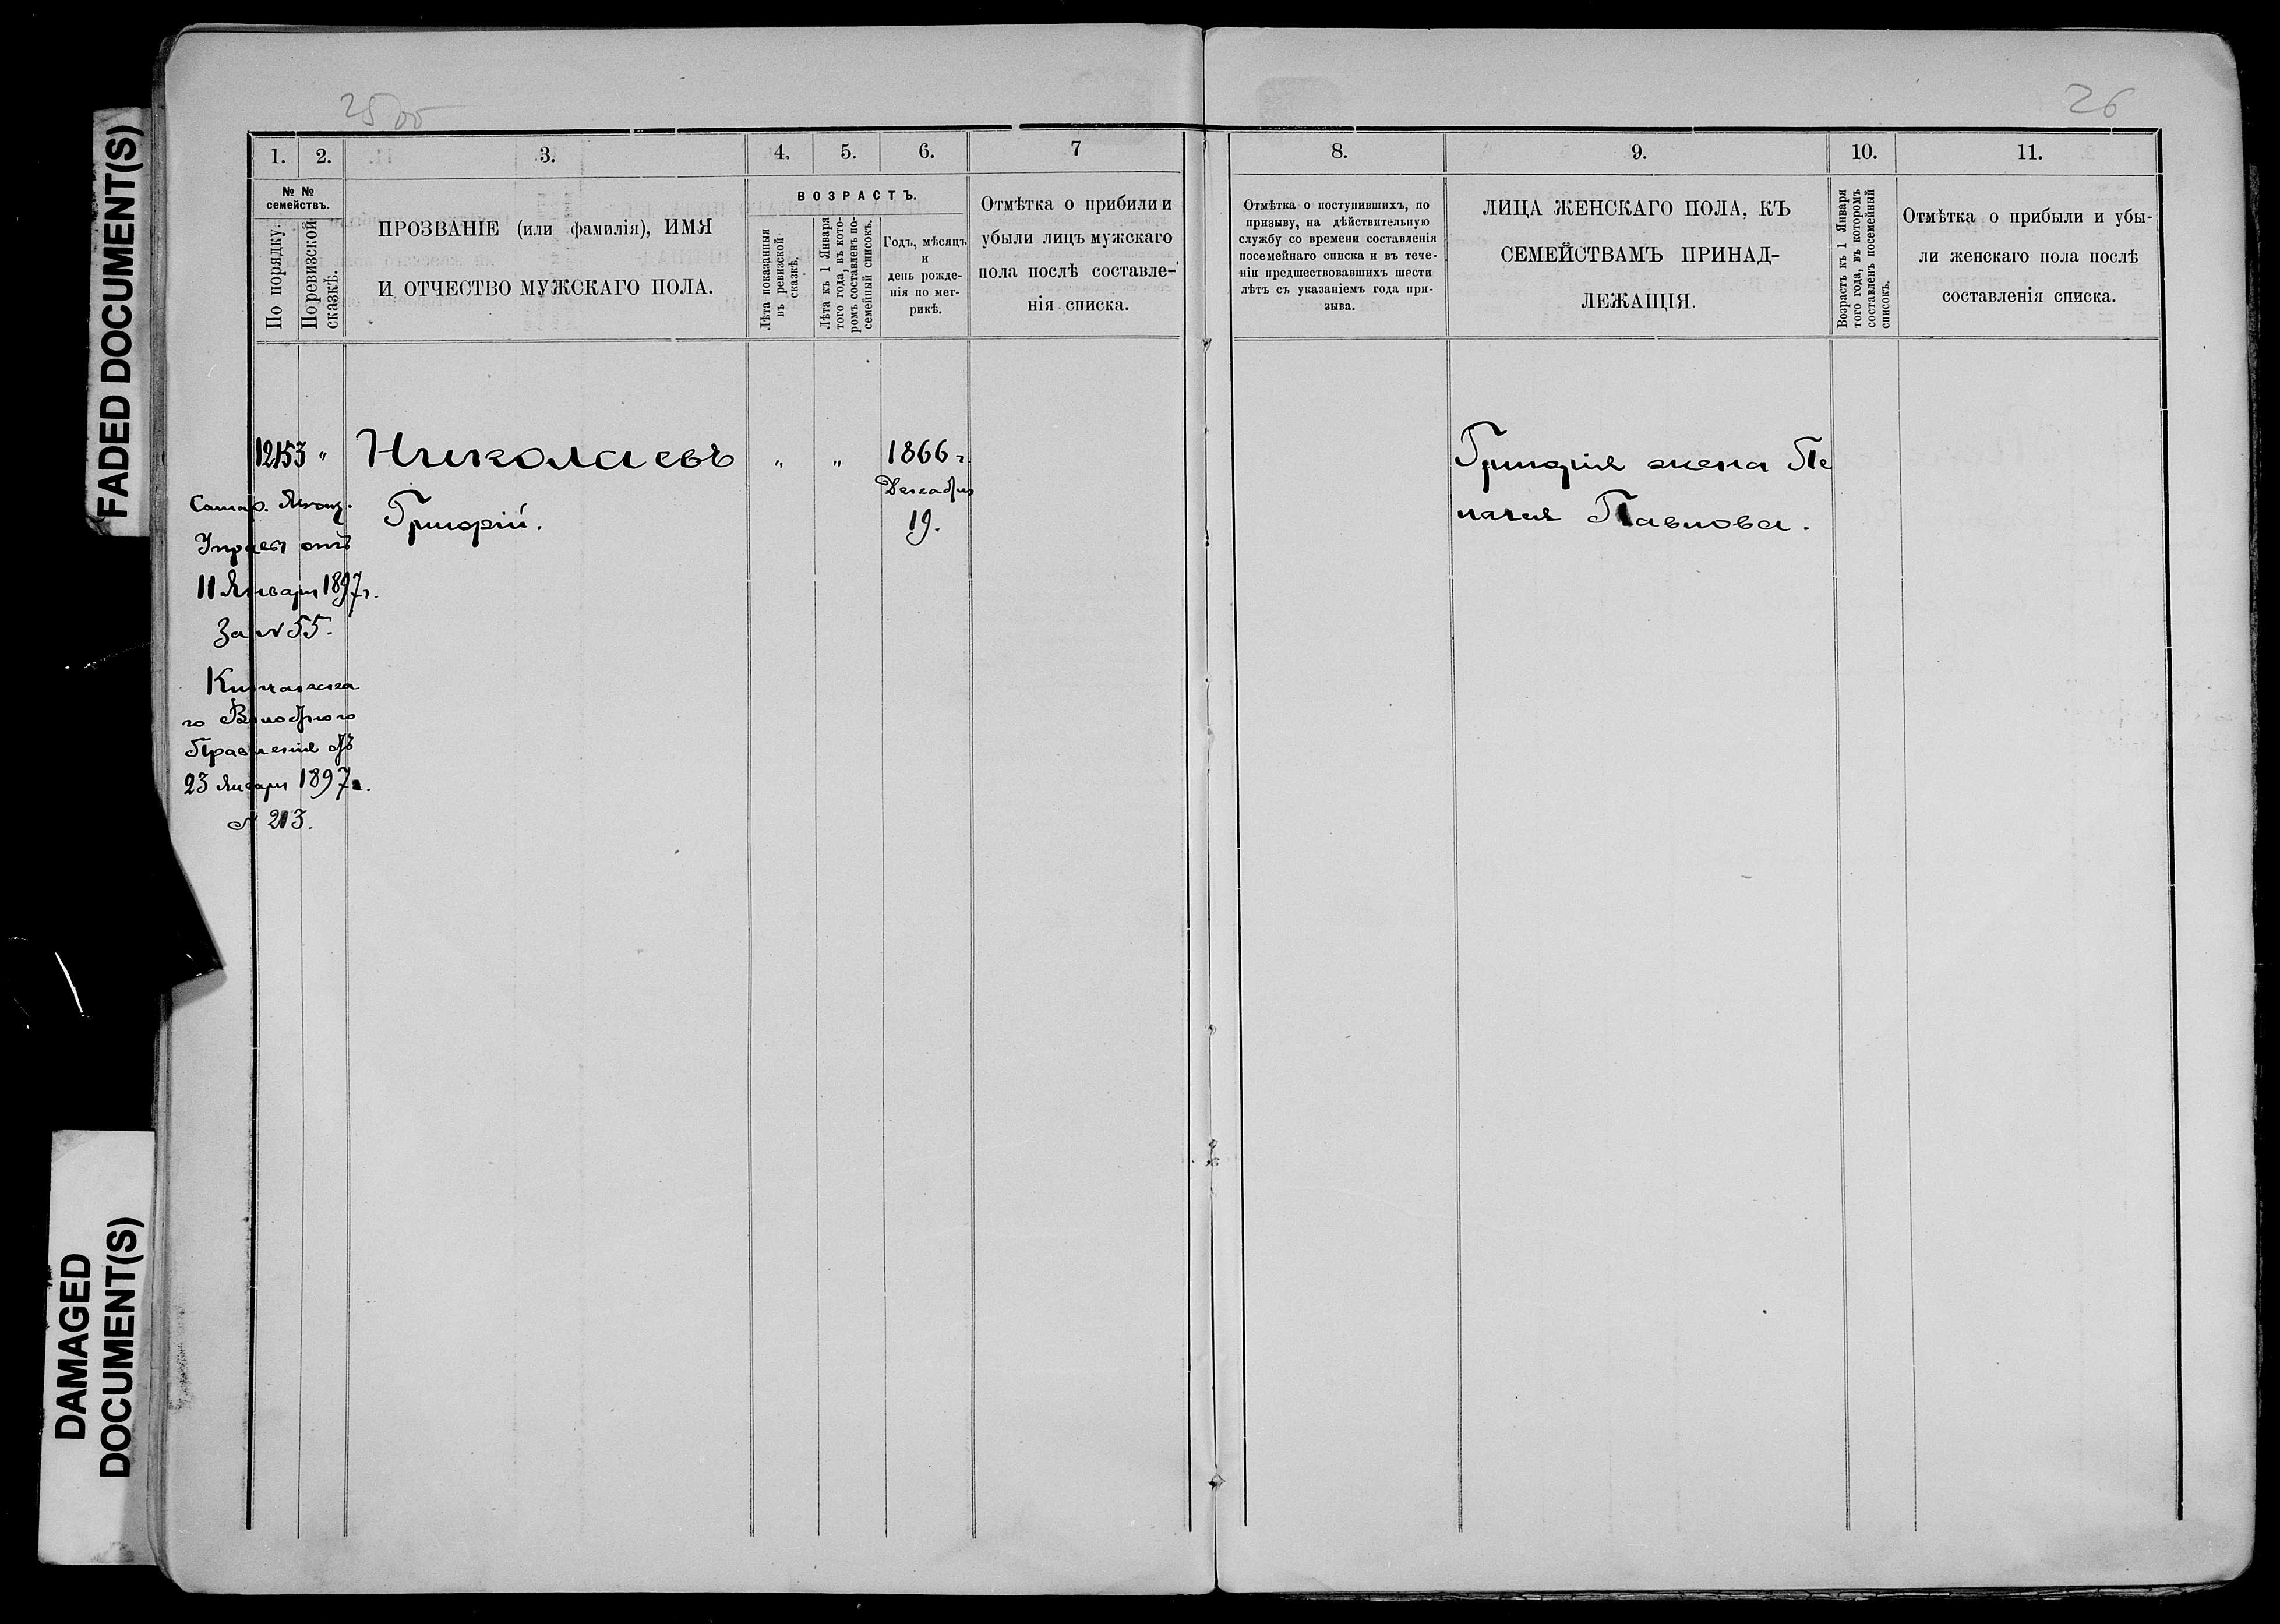 FADED DOCUMENT(S)
DAMAGED
DOCUMENT(S)
25об
1. 2. 3. 4. 5. 6. 7
№ №
семействъ.
По порядку.
По ревизской
сказкѣ.
ПРОЗВАНІЕ (или фамилія), ИМЯ
И ОТЧЕСТВО МУЖСКАГО ПОЛА.
ВОЗРАСТЪ.
Лѣта показанныя
въ ревизской
сказкѣ.
Лѣта къ 1 Января
того года, въ кото-
ромъ составленъ по-
семейный список.
Годъ, мѣсяцъ
и
день рожде-
нія по мет-
рикѣ.
Отмѣтка о прибили и
убыли лицъ мужскаго
пола послѣ составле-
нія списка.
12153 „ Николаевъ „ „ 1866 г.
Декабря
Григорій. 19.
Самар. Мѣщ.
Управы отъ
11 Января 1897 г.
За № 55.
го Волостного
Правленія отъ
23 Января 1897 г.
№ 213.
26
8. 9. 10. 11.
Отмѣтка о поступившихъ, по
призыву, на дѣйствительную
службу со времени составленія
посемейнаго списка и въ тече-
ніи предшествовавшихъ шести
лѣтъ съ указаніемъ года при-
зыва.
ЛИЦА ЖЕНСКАГО ПОЛА, КЪ
СЕМЕЙСТВАМЪ ПРИНАД-
ЛЕЖАЩІЯ.
Возрастъ къ 1 Января
того года, въ которомъ
составленъ посемейный
списокъ.
Отмѣтка о прибыли и убы-
ли женскаго пола послѣ
составленія списка.
Григорія жена Пе
лагея Павлова.